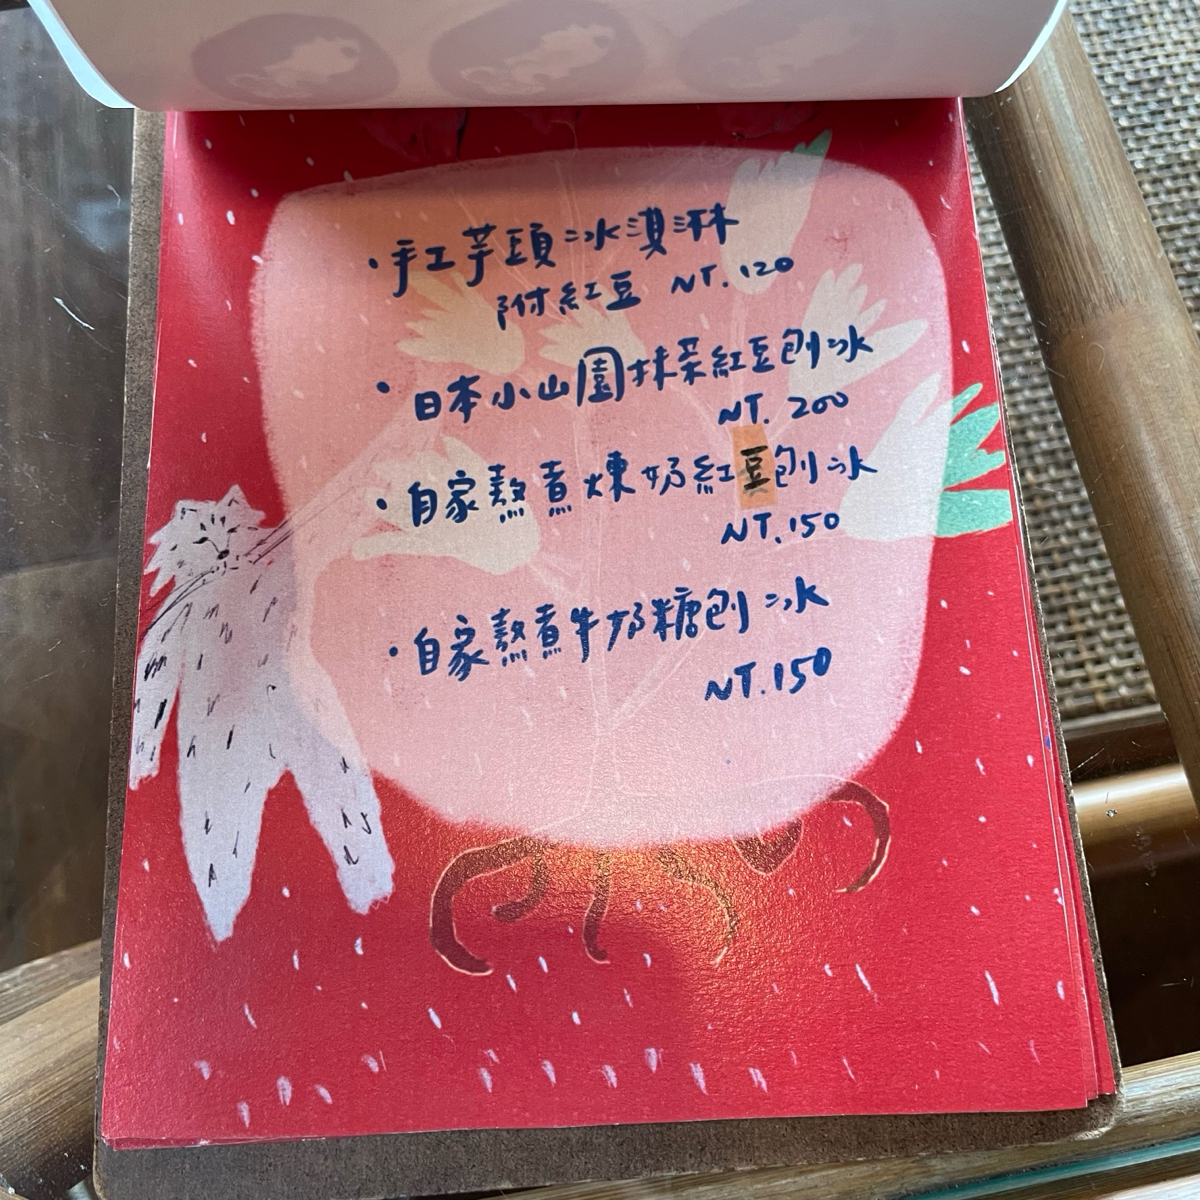 ・手工芋頭冰淇淋
附紅豆 NT.120
・日本小山園抹茶紅豆刨冰
NT.200
・自家熬煮煉奶紅豆刨冰
NT.150
・自家熬煮牛奶糖刨冰
NT.150